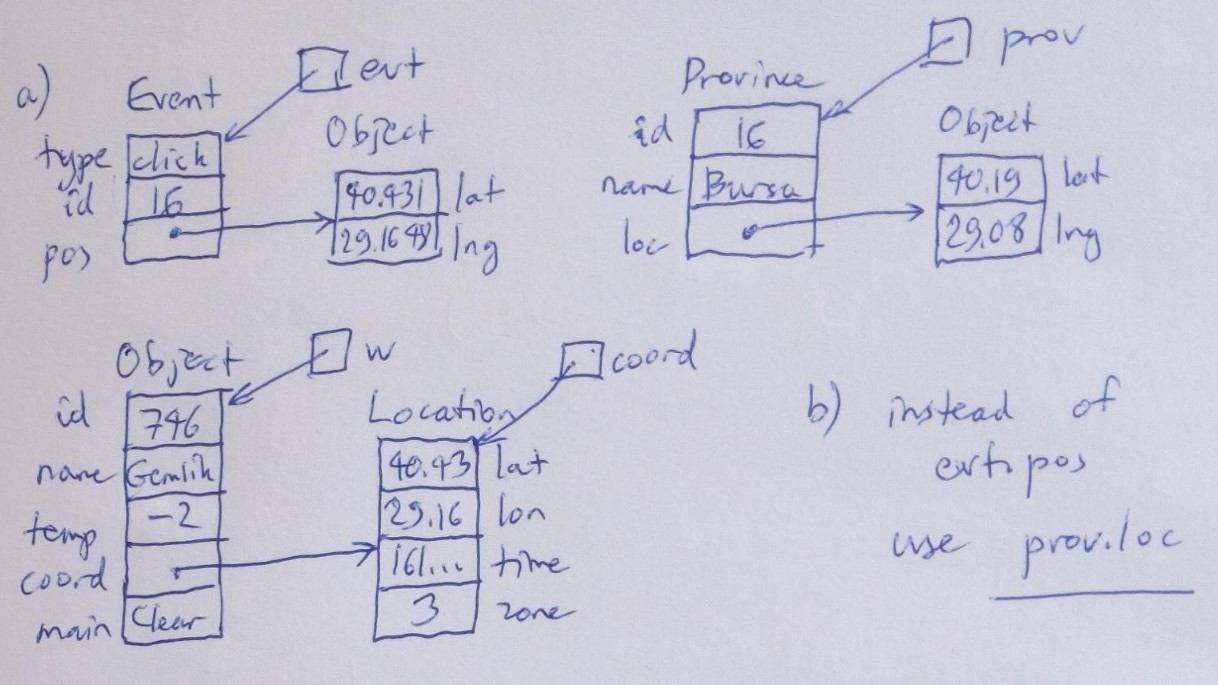 a)
Event
evt
type click
id 16
pos
Object
40.431 lat
29.1648 lng
Province
prov
id 16
name Bursa
loc
Object
40.19 lat
29.08 lng
Object
w
id 746
name Gemlik
temp -2
coord
main Clear
coord
Location
40.43 lat
29.16 lon
161... time
3 zone
b) instead of
evt.pos
use prov.loc